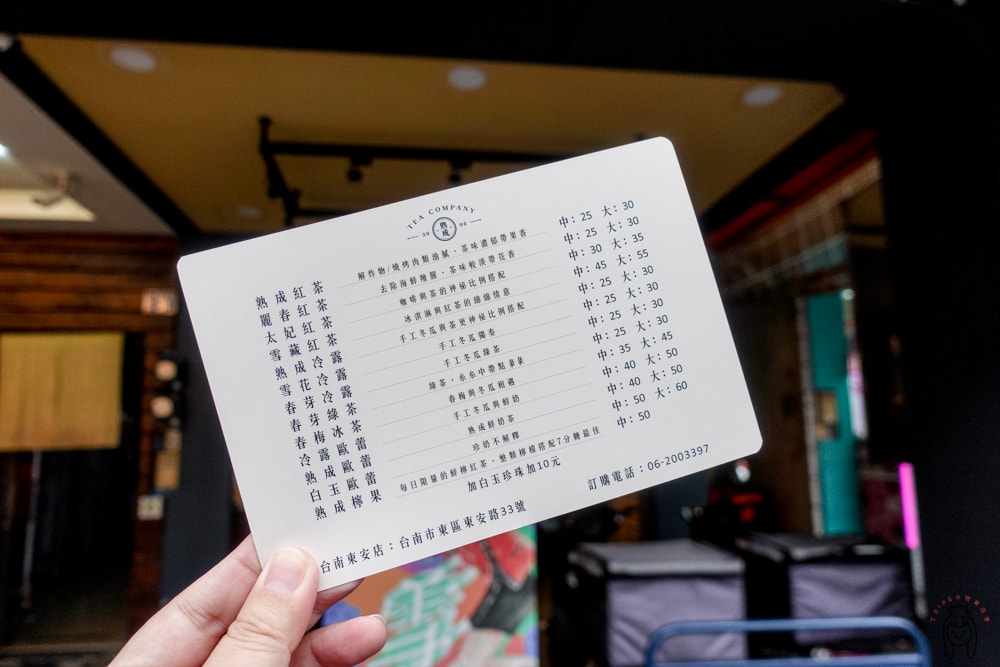 TEA COMPANY
20 熟成 08
熟成紅茶 解炸物/燒烤肉類油膩，茶味濃郁帶果香 中：25 大：30
麗春紅茶 去除海鮮羶腥，茶味較淡帶花香 中：25 大：30
太妃紅茶 咖啡與茶的神祕比例搭配 中：30 大：35
雪藏紅茶 冰淇淋與紅茶的綿綿情意 中：45 大：55
熟成冷露 手工冬瓜與茶更神祕比例搭配 中：25 大：30
雪花冷露 手工冬瓜獨奏 中：25 大：30
春芽冷露 手工冬瓜綠茶 中：25 大：30
春芽綠茶 綠茶，糸糸中帶點彖彖 中：25 大：30
春梅冰茶 春梅與冬瓜相遇 中：35 大：45
冷露歐蕾 手工冬瓜與鮮奶 中：40 大：50
熟成歐蕾 熟成鮮奶茶 中：40 大：50
白玉歐蕾 珍奶不解釋 中：50 大：60
熟成檸果 每日限量的鮮檸紅茶，整顆檸檬搭配7分糖最佳 中：50
加白玉珍珠加10元
台南東安店：台南市東區東安路33號 訂購電話：06-2003397